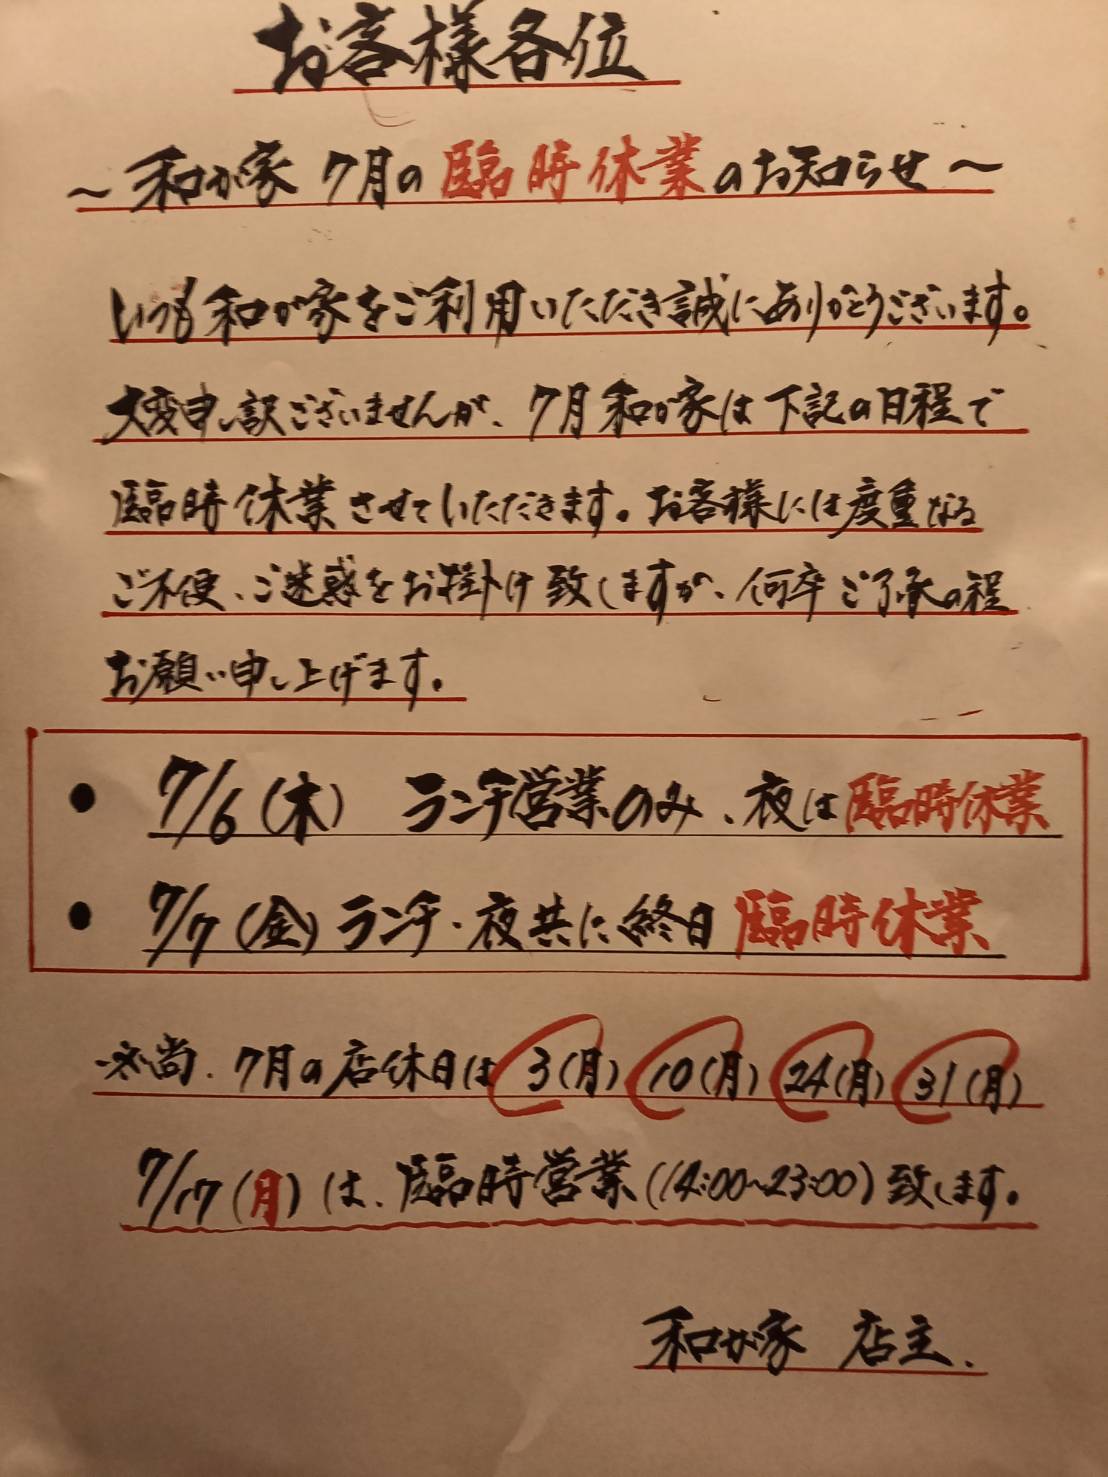 お客様各位
～和が家 7月の臨時休業のお知らせ～
いつも和が家をご利用いただき誠にありがとうございます。
大変申し訳ございませんが、7月和が家は下記の日程で
臨時休業させていただきます。お客様には度重なる
ご不便、ご迷惑をお掛け致しますが、何卒ご了承の程
お願い申し上げます。
● 7/6(木) ランチ営業のみ、夜は臨時休業
● 7/7(金)ランチ・夜共に終日臨時休業
※尚、7月の店休日は 3(月) 10(月) 24(月) 31(月)
7/17(月)は、臨時営業(14:00~23:00)致します。
和が家 店主.